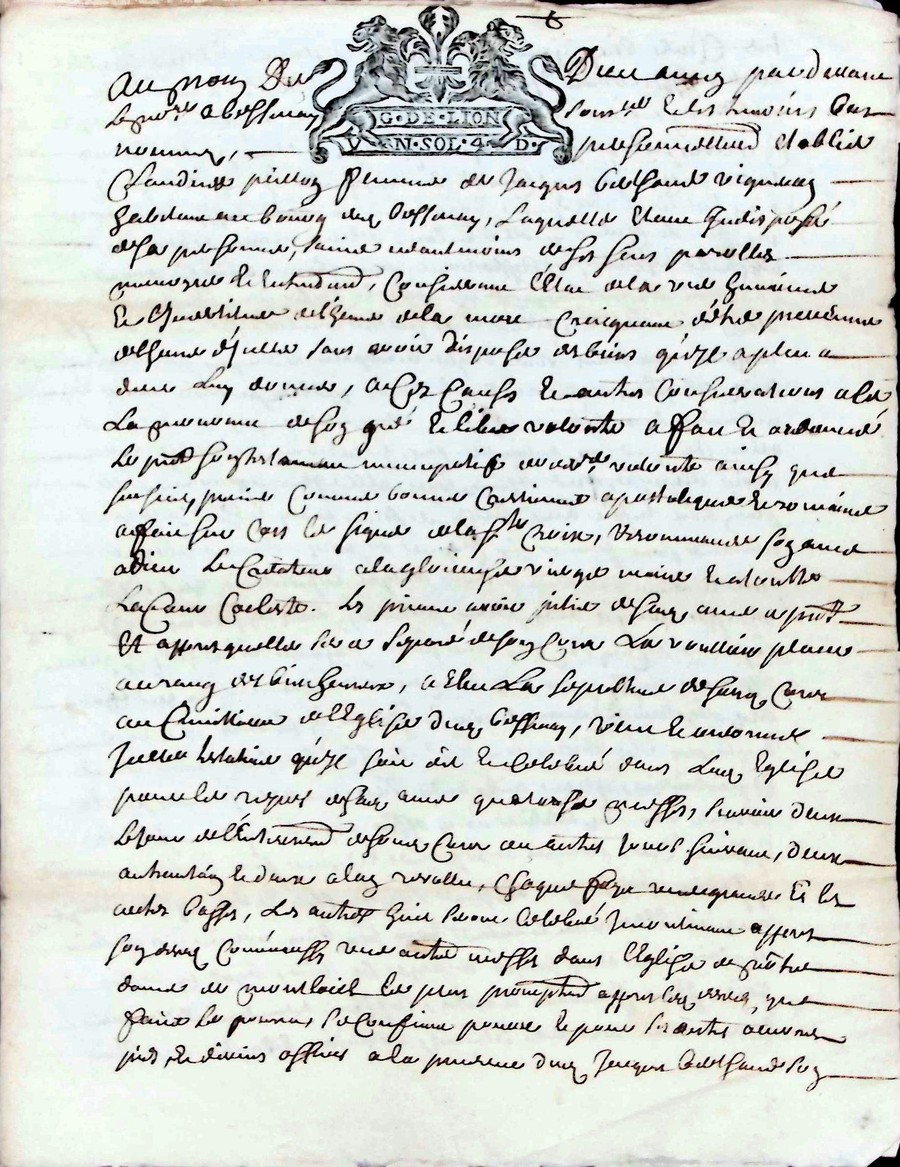 Au nom De Dieu amen pardevant
G·DE·LION
V·EN·SOL·4·D·
Le no.re a Bessenay soubs.né et les temoins bas
nommés, personnellement etablie
Claudine femme de Jacques vigneron
habitant au bourg dud. Bessenay, Laquelle etant Indisposée
de sa personne, saine neantmoins de ses sens parolle
memoire et Entendement, Considerant l'Etat de la vie humaine
Et l'Incertitude de l'heure de la mort Craignant d'être prevenue
d'Icelle sans avoir disposé des biens qu'il a pleu a
dieu Luy donner, a Ces Causes et autres Considerations a elle
La mouvant de son gré et libre volonté a fait et ordonné
Le p.nt son testament nuncupatif de volonté ainsy que
s'ensuit, primo Comme bonne Catholique apostolique et romaine
a fait sur Corps le signe de la s.te Croix, recommandé son ame
a dieu Le Createur a la glorieuse vierge marie et a toutte
La Cour Celeste. Les priant avoir pitié de son ame a p.nt
Et apres quelle sera separé de son Corps La vouloir placer
au rang des bienheureux, a Elu La sepulture de son Corps
au Cimittiere de l'Eglise dud. Bessenay, veut et ordonne
Icelle testatrice qu'il soit dit et Celebré dans Lad. Eglise
pour le repos de son ame quatorze messes, sçavoir Deux
Le jour de l'Enterrement de son Corps ou autres jours suivant, Deux
autres et deux a la revollu, Chaque fois une grande Et les
autres basses, Les autres huit seront Celebré Incontinant apres
son deces Comme aussy une autre messe dans l'Eglise de nôtre
dame de montloüel le plus promptement apres led. deces, que
faire se pourra se Confiant pour le autres œuvres
pies, et divins offices a la prudence dud. Jacques son